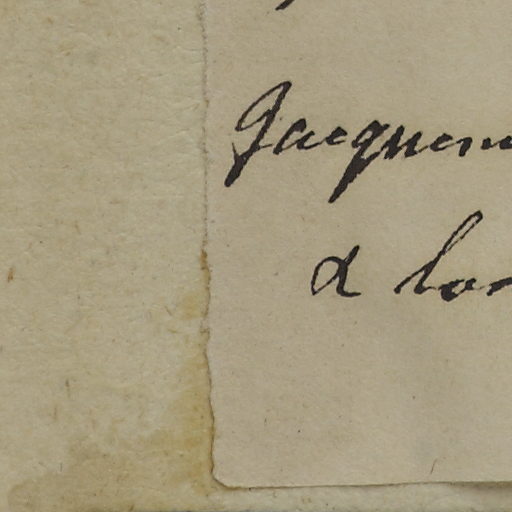 Jacquem
α lon